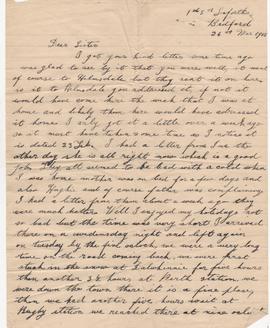 1st 5th Seaforths
Bedford
26th Mar 1915
Dear Sister
I got your kind letter some time ago
was glad to see by it that you were well, it went
of course to Helmsdale but they sent it on here,
is it to Helmsdale you addressed it, if not it
would have come here the week that I was at
home and likely them here would have addressed
it home I only got it a little over a week ago
so it must have taken some time as I notice it
is dated 23 Feb. I had a letter from Ina the
other day she is all right now which is a good
job They all seemed to be bad with a cold when
I was home mother was in bed for a few days and
also Hughie and of course father was complaining
I had a letter from them about a week ago they
were much better. Well I enjoyed my holidays not
so bad but the time was very short I arrived
there on a wednesday night and left again
on tuesday by the five oclock, we were a very long
time on the road coming back, we were first
stuck in the snow at Dalwhinnie for five hours
then another 3½ hours at Perth station, we
were down the town there it is a fine place,
then we had another five hours wait at
Rugby station we reached there at nine oclock